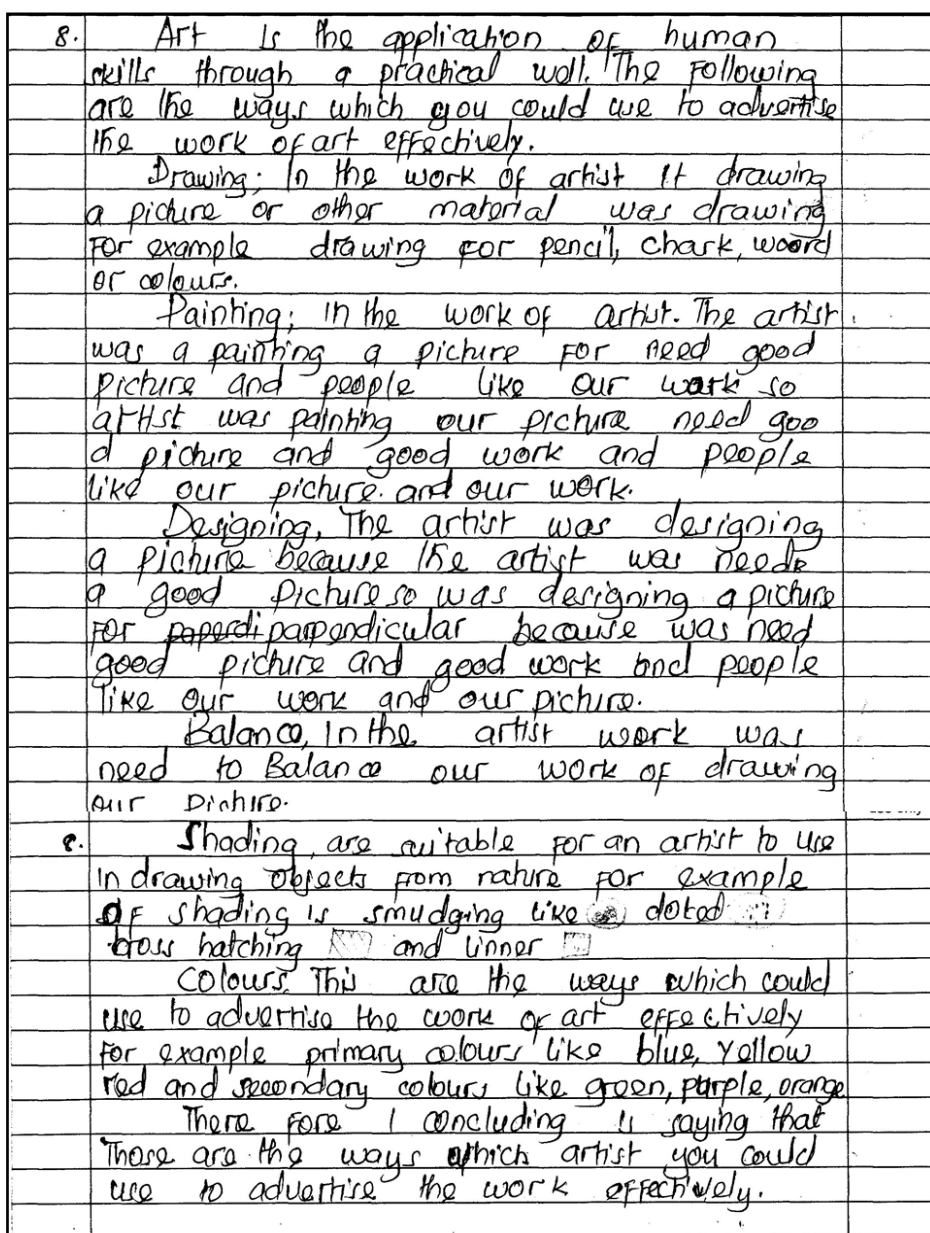 8. Art is the application of human
skills through a practical wall. The Following
are the ways which you could use to advertise
the work of art effectively.
Drawing; In the work of artist it drawing
a picture or other material was drawing
For example drawing for pencil, chark, woord
or colours.
Painting; in the work of artist. The artist
was a painting a picture For need good
picture and people like our work so
artist was painting our picture need goo
d picture and good work and people
like our picture and our work.
Designing, The artist was designing
a picture because the artist was neede
a good picture so was designing a picture
For paperdi parpendicular because was need
good picture and good work and people
like our work and our picture.
Balance, In the artist work was
need to Balance our work of drawing
our picture.
8. Shading, are suitable for an artist to use
in drawing objects from nature for example
of shading is smudging like doted
cross hatching and linner
Colours. This are the ways which could
use to advertise the work of art effectively
for example primary colours like blue, yellow
red and secondary colours like green, purple, orange
There fore I concluding is saying that
Those are the ways which artist you could
use to advertise the work effectively.